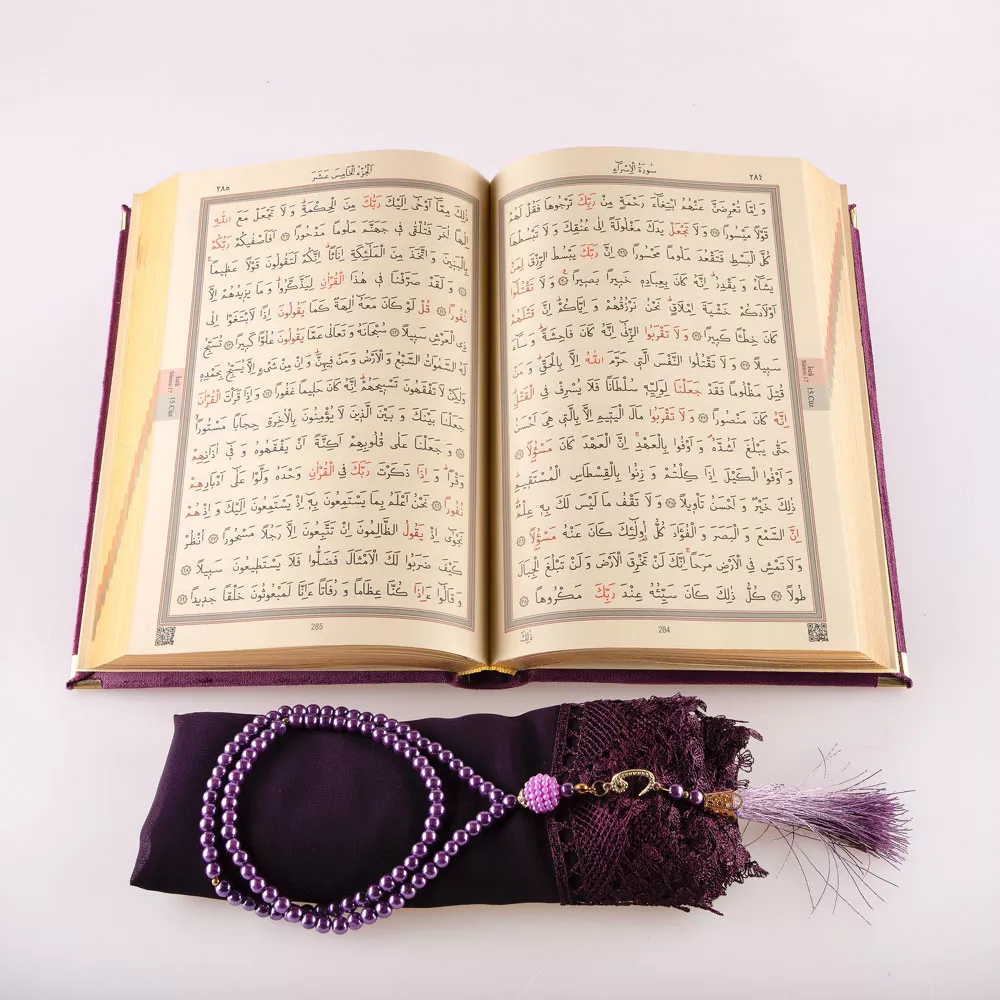 سُورَةُ الْاِسْرَاءِ ٢٨٤
وَ اِمَّا تُعْرِضَنَّ عَنْهُمُ ابْتِغَٓاءَ رَحْمَةٍ مِنْ رَبِّكَ تَرْجُوهَا فَقُلْ لَهُمْ
قَوْلاً مَيْسُوراً ﴿٢٨﴾ وَ لَا تَجْعَلْ يَدَكَ مَغْلُولَةً اِلٰى عُنُقِكَ وَ لَا تَبْسُطْهَا
كُلَّ الْبَسْطِ فَتَقْعُدَ مَلُوماً مَحْسُوراً ﴿٢٩﴾ اِنَّ رَبَّكَ يَبْسُطُ الرِّزْقَ لِمَنْ
يَشَٓاءُ وَ يَقْدِرُ اِنَّهُ كَانَ بِعِبَادِهِ خَبِيراً بَصِيراً ﴿٣٠﴾ وَ لَا تَقْتُلُٓوا
اَوْلَادَكُمْ خَشْيَةَ اِمْلَاقٍ نَحْنُ نَرْزُقُهُمْ وَ اِيَّاكُمْ اِنَّ قَتْلَهُمْ
كَانَ خِطْـٔاً كَبِيراً ﴿٣١﴾ وَ لَا تَقْرَبُوا الزِّنٰٓى اِنَّهُ كَانَ فَاحِشَةً وَ سَٓاءَ
سَبِيلاً ﴿٣٢﴾ وَ لَا تَقْتُلُوا النَّفْسَ الَّتِي حَرَّمَ اللّٰهُ اِلَّا بِالْحَقِّ وَ مَنْ
قُتِلَ مَظْلُوماً فَقَدْ جَعَلْنَا لِوَلِيِّهِ سُلْطَاناً فَلَا يُسْرِفْ فِي الْقَتْلِ
اِنَّهُ كَانَ مَنْصُوراً ﴿٣٣﴾ وَ لَا تَقْرَبُوا مَالَ الْيَتِيمِ اِلَّا بِالَّتِي هِيَ اَحْسَنُ
حَتّٰى يَبْلُغَ اَشُدَّهُ وَ اَوْفُوا بِالْعَهْدِ اِنَّ الْعَهْدَ كَانَ مَسْؤُلاً ﴿٣٤﴾
وَ اَوْفُوا الْكَيْلَ اِذَا كِلْتُمْ وَ زِنُوا بِالْقِسْطَاسِ الْمُسْتَقِيمِ
ذٰلِكَ خَيْرٌ وَ اَحْسَنُ تَأْوِيلاً ﴿٣٥﴾ وَ لَا تَقْفُ مَا لَيْسَ لَكَ بِهِ عِلْمٌ
اِنَّ السَّمْعَ وَ الْبَصَرَ وَ الْفُؤَادَ كُلُّ اُو۬لٰٓئِكَ كَانَ عَنْهُ مَسْؤُلاً ﴿٣٦﴾
وَ لَا تَمْشِ فِي الْاَرْضِ مَرَحاً اِنَّكَ لَنْ تَخْرِقَ الْاَرْضَ وَ لَنْ تَبْلُغَ الْجِبَالَ
طُولاً ﴿٣٧﴾ كُلُّ ذٰلِكَ كَانَ سَيِّئُهُ عِنْدَ رَبِّكَ مَكْرُوهاً ﴿٣٨﴾
ذٰلِكَ
284
اَلْجُزْءُ الْخَامِسَ عَشَرَ ٢٨٥
ذٰلِكَ مِمَّٓا اَوْحٰٓى اِلَيْكَ رَبُّكَ مِنَ الْحِكْمَةِ وَ لَا تَجْعَلْ مَعَ اللّٰهِ
اِلٰهاً اٰخَرَ فَتُلْقٰى فِي جَهَنَّمَ مَلُوماً مَدْحُوراً ﴿٣٩﴾ اَفَاَصْفٰيكُمْ رَبُّكُمْ
بِالْبَنِينَ وَ اتَّخَذَ مِنَ الْمَلٰٓئِكَةِ اِنَاثاً اِنَّكُمْ لَتَقُولُونَ قَوْلاً عَظِيماً
﴿٤٠﴾ وَ لَقَدْ صَرَّفْنَا فِي هٰذَا الْقُرْاٰنِ لِيَذَّكَّرُوا وَ مَا يَزِيدُهُمْ اِلَّا
نُفُوراً ﴿٤١﴾ قُلْ لَوْ كَانَ مَعَهُٓ اٰلِهَةٌ كَمَا يَقُولُونَ اِذاً لَابْتَغَوْا اِلٰى
ذِي الْعَرْشِ سَبِيلاً ﴿٤٢﴾ سُبْحَانَهُ وَ تَعَالٰى عَمَّا يَقُولُونَ عُلُوًّا كَبِيراً ﴿٤٣﴾ تُسَبِّحُ
لَهُ السَّمٰوَاتُ السَّبْعُ وَ الْاَرْضُ وَ مَنْ فِيهِنَّ وَ اِنْ مِنْ شَيْءٍ اِلَّا يُسَبِّحُ بِحَمْدِهِ
وَلٰكِنْ لَا تَفْقَهُونَ تَسْبِيحَهُمْ اِنَّهُ كَانَ حَلِيماً غَفُوراً ﴿٤٤﴾ وَ اِذَا قَرَأْتَ الْقُرْاٰنَ
جَعَلْنَا بَيْنَكَ وَ بَيْنَ الَّذِينَ لَا يُؤْمِنُونَ بِالْاٰخِرَةِ حِجَاباً مَسْتُوراً
﴿٤٥﴾ وَ جَعَلْنَا عَلٰى قُلُوبِهِمْ اَكِنَّةً اَنْ يَفْقَهُوهُ وَ فِٓي اٰذَانِهِمْ
وَقْراً وَ اِذَا ذَكَرْتَ رَبَّكَ فِي الْقُرْاٰنِ وَحْدَهُ وَلَّوْا عَلٰٓى اَدْبَارِهِمْ
نُفُوراً ﴿٤٦﴾ نَحْنُ اَعْلَمُ بِمَا يَسْتَمِعُونَ بِهِٓ اِذْ يَسْتَمِعُونَ اِلَيْكَ وَ اِذْ هُمْ
نَجْوٰٓى اِذْ يَقُولُ الظَّالِمُونَ اِنْ تَتَّبِعُونَ اِلَّا رَجُلاً مَسْحُوراً ﴿٤٧﴾ اُنْظُرْ
كَيْفَ ضَرَبُوا لَكَ الْاَمْثَالَ فَضَلُّوا فَلَا يَسْتَطِيعُونَ سَبِيلاً ﴿٤٨﴾
وَ قَالُٓوا ءَاِذَا كُنَّا عِظَاماً وَ رُفَاتاً ءَاِنَّا لَمَبْعُوثُونَ خَلْقاً جَدِيداً ﴿٤٩﴾
285